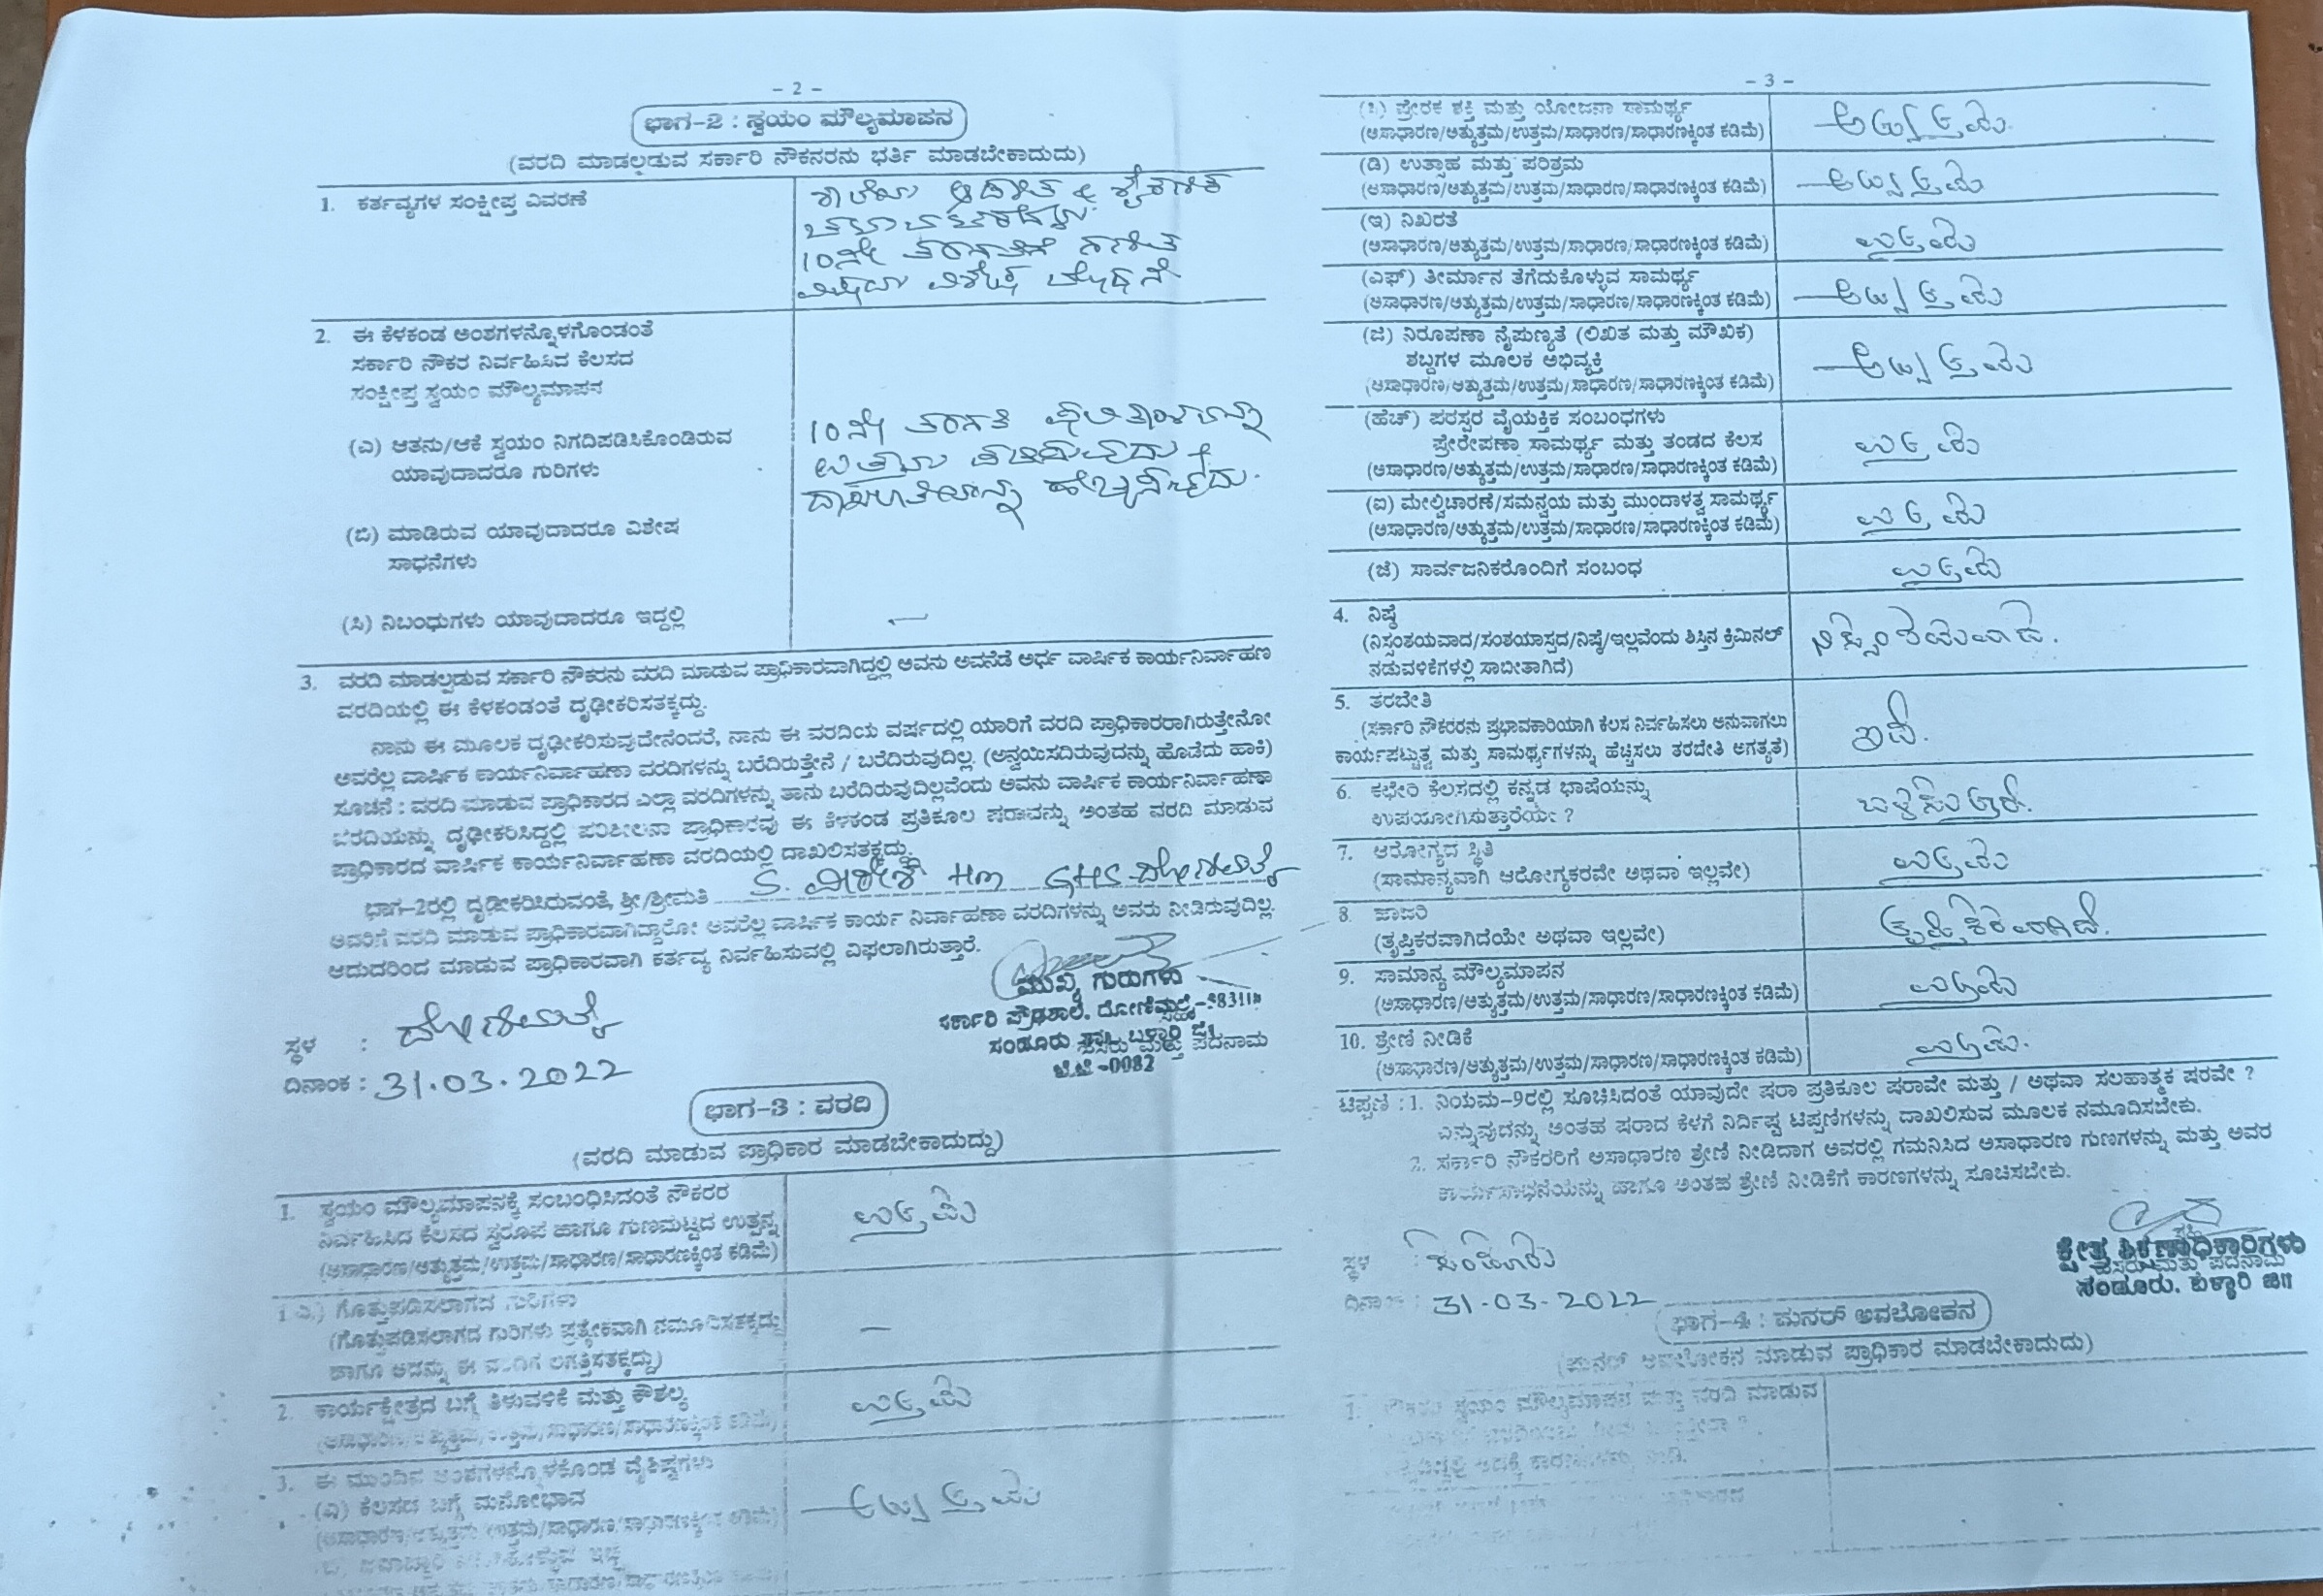 - 2 -
ಭಾಗ-2 : ಸ್ವಯಂ ಮೌಲ್ಯಮಾಪನ
(ವರದಿ ಮಾಡಲ್ಪಡುವ ಸರ್ಕಾರಿ ನೌಕನರನು ಭರ್ತಿ ಮಾಡಬೇಕಾದುದು)
1. ಕರ್ತವ್ಯಗಳ ಸಂಕ್ಷೀಪ್ತ ವಿವರಣೆ
ಶಾಲೆಯ ಆಡಳಿತ & ಶೈಕ್ಷಣಿಕ
10ನೇ ತರಗತಿಗೆ ಗಣಿತ
ವಿಷಯ ವಿಶೇಷ ಬೋಧನೆ
2. ಈ ಕೆಳಕಂಡ ಅಂಶಗಳನ್ನೊಳಗೊಂಡಂತೆ
ಸರ್ಕಾರಿ ನೌಕರ ನಿರ್ವಹಿಸಿದ ಕೆಲಸದ
ಸಂಕ್ಷೀಪ್ತ ಸ್ವಯಂ ಮೌಲ್ಯಮಾಪನ
(ಎ) ಆತನು/ಆಕೆ ಸ್ವಯಂ ನಿಗದಿಪಡಿಸಿಕೊಂಡಿರುವ
ಯಾವುದಾದರೂ ಗುರಿಗಳು
10ನೇ ತರಗತಿ ಫಲಿತಾಂಶವನ್ನು
ಉತ್ತಮ ಪಡಿಸುವುದು +
ದಾಖಲಾತಿಯನ್ನು ಹೆಚ್ಚಿಸುವುದು.
(ಬಿ) ಮಾಡಿರುವ ಯಾವುದಾದರೂ ವಿಶೇಷ
ಸಾಧನೆಗಳು
(ಸಿ) ನಿಬಂಧುಗಳು ಯಾವುದಾದರೂ ಇದ್ದಲ್ಲಿ —
3. ವರದಿ ಮಾಡಲ್ಪಡುವ ಸರ್ಕಾರಿ ನೌಕರನು ವರದಿ ಮಾಡುವ ಪ್ರಾಧಿಕಾರವಾಗಿದ್ದಲ್ಲಿ ಅವನು ಅವನೆಡೆ ಅರ್ಧ ವಾರ್ಷಿಕ ಕಾರ್ಯನಿರ್ವಾಹಣ
ವರದಿಯಲ್ಲಿ ಈ ಕೆಳಕಂಡಂತೆ ದೃಢೀಕರಿಸತಕ್ಕದ್ದು.
ನಾನು ಈ ಮೂಲಕ ದೃಢೀಕರಿಸುವುದೇನೆಂದರೆ, ನಾನು ಈ ವರದಿಯ ವರ್ಷದಲ್ಲಿ ಯಾರಿಗೆ ವರದಿ ಪ್ರಾಧಿಕಾರರಾಗಿರುತ್ತೇನೋ
ಅವರೆಲ್ಲ ವಾರ್ಷಿಕ ಕಾರ್ಯನಿರ್ವಾಹಣಾ ವರದಿಗಳನ್ನು ಬರೆದಿರುತ್ತೇನೆ / ಬರೆದಿರುವುದಿಲ್ಲ. (ಅನ್ವಯಿಸದಿರುವುದನ್ನು ಹೊಡೆದು ಹಾಕಿ)
ಸೂಚನೆ : ವರದಿ ಮಾಡುವ ಪ್ರಾಧಿಕಾರದ ಎಲ್ಲಾ ವರದಿಗಳನ್ನು ತಾನು ಬರೆದಿರುವುದಿಲ್ಲವೆಂದು ಅವನು ವಾರ್ಷಿಕ ಕಾರ್ಯನಿರ್ವಾಹಣಾ
ವರದಿಯನ್ನು ದೃಢೀಕರಿಸಿದ್ದಲ್ಲಿ ಪರಿಶೀಲನಾ ಪ್ರಾಧಿಕಾರವು ಈ ಕೆಳಕಂಡ ಪ್ರತಿಕೂಲ ಷರಾವನ್ನು ಅಂತಹ ವರದಿ ಮಾಡುವ
ಪ್ರಾಧಿಕಾರದ ವಾರ್ಷಿಕ ಕಾರ್ಯನಿರ್ವಾಹಣಾ ವರದಿಯಲ್ಲಿ ದಾಖಲಿಸತಕ್ಕದ್ದು.
ಭಾಗ-2ರಲ್ಲಿ ದೃಢೀಕರಿಸಿರುವಂತೆ, ಶ್ರೀ/ಶ್ರೀಮತಿ S. ವೀರೇಶ್ Hm GHS ದೋಣಿಮಲೈ
ಅವರಿಗೆ ವರದಿ ಮಾಡುವ ಪ್ರಾಧಿಕಾರವಾಗಿದ್ದಾರೋ ಅವರೆಲ್ಲ ವಾರ್ಷಿಕ ಕಾರ್ಯ ನಿರ್ವಾಹಣಾ ವರದಿಗಳನ್ನು ಅವರು ನೀಡಿರುವುದಿಲ್ಲ.
ಆದುದರಿಂದ ಮಾಡುವ ಪ್ರಾಧಿಕಾರವಾಗಿ ಕರ್ತವ್ಯ ನಿರ್ವಹಿಸುವಲ್ಲಿ ವಿಫಲಾಗಿರುತ್ತಾರೆ.
ಮುಖ್ಯ ಗುರುಗಳು
ಸರ್ಕಾರಿ ಪ್ರೌಢಶಾಲೆ, ದೋಣಿಮಲೈ-58311
ಸಂಡೂರು ತಾ, ಬಳ್ಳಾರಿ ಜಿ,
ಹೆಸರು ಮತ್ತು ಪದನಾಮ
ಜೆ.ಜೆ -0082
ಸ್ಥಳ : ದೋಣಿಮಲೈ
ದಿನಾಂಕ : 31.03.2022
ಭಾಗ-3 : ವರದಿ
(ವರದಿ ಮಾಡುವ ಪ್ರಾಧಿಕಾರ ಮಾಡಬೇಕಾದುದ್ದು)
1. ಸ್ವಯಂ ಮೌಲ್ಯಮಾಪನಕ್ಕೆ ಸಂಬಂಧಿಸಿದಂತೆ ನೌಕರರ
ನಿರ್ವಹಿಸಿದ ಕೆಲಸದ ಸ್ವರೂಪ ಹಾಗೂ ಗುಣಮಟ್ಟದ ಉತ್ಪನ್ನ ಉತ್ತಮ
(ಅಸಾಧಾರಣ/ಅತ್ಯುತ್ತಮ/ಉತ್ತಮ/ಸಾಧಾರಣ/ಸಾಧಾರಣಕ್ಕಿಂತ ಕಡಿಮೆ)
1 ಎ.) ಗೊತ್ತುಪಡಿಸಲಾಗದ ಗುರಿಗಳು
(ಗೊತ್ತುಪಡಿಸಲಾಗದ ಗುರಿಗಳು ಪ್ರತ್ಯೇಕವಾಗಿ ನಮೂದಿಸತಕ್ಕದ್ದು —
ಹಾಗೂ ಅದನ್ನು ಈ ವರದಿಗೆ ಲಗತ್ತಿಸತಕ್ಕದ್ದು)
2. ಕಾರ್ಯಕ್ಷೇತ್ರದ ಬಗ್ಗೆ ತಿಳುವಳಿಕೆ ಮತ್ತು ಕೌಶಲ್ಯ ಉತ್ತಮ
(ಅಸಾಧಾರಣ/ಅತ್ಯುತ್ತಮ/ಉತ್ತಮ/ಸಾಧಾರಣ/ಸಾಧಾರಣಕ್ಕಿಂತ ಕಡಿಮೆ)
3. ಈ ಮುಂದಿನ ಅಂಶಗಳನ್ನೊಳಕೊಂಡ ವೈಶಿಷ್ಟ್ಯಗಳು
(ಎ) ಕೆಲಸದ ಬಗ್ಗೆ ಮನೋಭಾವ ಅತ್ಯುತ್ತಮ
(ಅಸಾಧಾರಣ/ಅತ್ಯುತ್ತಮ/ಉತ್ತಮ/ಸಾಧಾರಣ/ಸಾಧಾರಣಕ್ಕಿಂತ ಕಡಿಮೆ)
- 3 -
(ಸಿ) ಪ್ರೇರಕ ಶಕ್ತಿ ಮತ್ತು ಯೋಜನಾ ಸಾಮರ್ಥ್ಯ
(ಅಸಾಧಾರಣ/ಅತ್ಯುತ್ತಮ/ಉತ್ತಮ/ಸಾಧಾರಣ/ಸಾಧಾರಣಕ್ಕಿಂತ ಕಡಿಮೆ) ಅತ್ಯುತ್ತಮ
(ಡಿ) ಉತ್ಸಾಹ ಮತ್ತು ಪರಿಶ್ರಮ
(ಅಸಾಧಾರಣ/ಅತ್ಯುತ್ತಮ/ಉತ್ತಮ/ಸಾಧಾರಣ/ಸಾಧಾರಣಕ್ಕಿಂತ ಕಡಿಮೆ) ಅತ್ಯುತ್ತಮ
(ಇ) ನಿಖರತೆ
(ಅಸಾಧಾರಣ/ಅತ್ಯುತ್ತಮ/ಉತ್ತಮ/ಸಾಧಾರಣ/ಸಾಧಾರಣಕ್ಕಿಂತ ಕಡಿಮೆ) ಉತ್ತಮ
(ಎಫ್) ತೀರ್ಮಾನ ತೆಗೆದುಕೊಳ್ಳುವ ಸಾಮರ್ಥ್ಯ
(ಅಸಾಧಾರಣ/ಅತ್ಯುತ್ತಮ/ಉತ್ತಮ/ಸಾಧಾರಣ/ಸಾಧಾರಣಕ್ಕಿಂತ ಕಡಿಮೆ) ಅತ್ಯುತ್ತಮ
(ಜಿ) ನಿರೂಪಣಾ ನೈಪುಣ್ಯತೆ (ಲಿಖಿತ ಮತ್ತು ಮೌಖಿಕ)
ಶಬ್ದಗಳ ಮೂಲಕ ಅಭಿವ್ಯಕ್ತಿ ಅತ್ಯುತ್ತಮ
(ಅಸಾಧಾರಣ/ಅತ್ಯುತ್ತಮ/ಉತ್ತಮ/ಸಾಧಾರಣ/ಸಾಧಾರಣಕ್ಕಿಂತ ಕಡಿಮೆ)
(ಹೆಚ್) ಪರಸ್ಪರ ವೈಯಕ್ತಿಕ ಸಂಬಂಧಗಳು
ಪ್ರೇರೇಪಣಾ ಸಾಮರ್ಥ್ಯ ಮತ್ತು ತಂಡದ ಕೆಲಸ ಉತ್ತಮ
(ಅಸಾಧಾರಣ/ಅತ್ಯುತ್ತಮ/ಉತ್ತಮ/ಸಾಧಾರಣ/ಸಾಧಾರಣಕ್ಕಿಂತ ಕಡಿಮೆ)
(ಐ) ಮೇಲ್ವಿಚಾರಣೆ/ಸಮನ್ವಯ ಮತ್ತು ಮುಂದಾಳತ್ವ ಸಾಮರ್ಥ್ಯ
(ಅಸಾಧಾರಣ/ಅತ್ಯುತ್ತಮ/ಉತ್ತಮ/ಸಾಧಾರಣ/ಸಾಧಾರಣಕ್ಕಿಂತ ಕಡಿಮೆ) ಉತ್ತಮ
(ಜೆ) ಸಾರ್ವಜನಿಕರೊಂದಿಗೆ ಸಂಬಂಧ ಉತ್ತಮ
4. ನಿಷ್ಠೆ
(ನಿಸ್ಸಂಶಯವಾದ/ಸಂಶಯಾಸ್ಪದ/ನಿಷ್ಠೆ/ಇಲ್ಲವೆಂದು ಶಿಸ್ತಿನ ಕ್ರಿಮಿನಲ್ ನಿಸ್ಸಂಶಯವಾದ.
ನಡುವಳಿಕೆಗಳಲ್ಲಿ ಸಾಬೀತಾಗಿದೆ)
5. ತರಬೇತಿ
(ಸರ್ಕಾರಿ ನೌಕರರನು ಪ್ರಭಾವಕಾರಿಯಾಗಿ ಕೆಲಸ ನಿರ್ವಹಿಸಲು ಅನುವಾಗಲು
ಕಾರ್ಯಪಟ್ಟುತ್ವ ಮತ್ತು ಸಾಮರ್ಥ್ಯಗಳನ್ನು ಹೆಚ್ಚಿಸಲು ತರಬೇತಿ ಅಗತ್ಯತೆ) ಇದೆ.
6. ಕಛೇರಿ ಕೆಲಸದಲ್ಲಿ ಕನ್ನಡ ಭಾಷೆಯನ್ನು
ಉಪಯೋಗಿಸುತ್ತಾರೆಯೇ ? ಬಳಸುತ್ತಾರೆ.
7. ಆರೋಗ್ಯದ ಸ್ಥಿತಿ
(ಸಾಮಾನ್ಯವಾಗಿ ಆರೋಗ್ಯಕರವೇ ಅಥವಾ ಇಲ್ಲವೇ) ಉತ್ತಮ
8. ಹಾಜರಿ
(ತೃಪ್ತಿಕರವಾಗಿದೆಯೇ ಅಥವಾ ಇಲ್ಲವೇ) ತೃಪ್ತಿಕರವಾಗಿದೆ.
9. ಸಾಮಾನ್ಯ ಮೌಲ್ಯಮಾಪನ
(ಅಸಾಧಾರಣ/ಅತ್ಯುತ್ತಮ/ಉತ್ತಮ/ಸಾಧಾರಣ/ಸಾಧಾರಣಕ್ಕಿಂತ ಕಡಿಮೆ) ಉತ್ತಮ
10. ಶ್ರೇಣಿ ನೀಡಿಕೆ
(ಅಸಾಧಾರಣ/ಅತ್ಯುತ್ತಮ/ಉತ್ತಮ/ಸಾಧಾರಣ/ಸಾಧಾರಣಕ್ಕಿಂತ ಕಡಿಮೆ) ಉತ್ತಮ.
ಟಿಪ್ಪಣಿ : 1. ನಿಯಮ-9ರಲ್ಲಿ ಸೂಚಿಸಿದಂತೆ ಯಾವುದೇ ಷರಾ ಪ್ರತಿಕೂಲ ಷರಾವೇ ಮತ್ತು / ಅಥವಾ ಸಲಹಾತ್ಮಕ ಷರವೇ ?
ಎನ್ನುವುದನ್ನು ಅಂತಹ ಷರಾದ ಕೆಳಗೆ ನಿರ್ದಿಷ್ಟ ಟಿಪ್ಪಣಿಗಳನ್ನು ದಾಖಲಿಸುವ ಮೂಲಕ ನಮೂದಿಸಬೇಕು.
2. ಸರ್ಕಾರಿ ನೌಕರರಿಗೆ ಅಸಾಧಾರಣ ಶ್ರೇಣಿ ನೀಡಿದಾಗ ಅವರಲ್ಲಿ ಗಮನಿಸಿದ ಅಸಾಧಾರಣ ಗುಣಗಳನ್ನು ಮತ್ತು ಅವರ
ಕಾರ್ಯಸಾಧನೆಯನ್ನು ಹಾಗೂ ಅಂತಹ ಶ್ರೇಣಿ ನೀಡಿಕೆಗೆ ಕಾರಣಗಳನ್ನು ಸೂಚಿಸಬೇಕು.
ಸ್ಥಳ : ಸಂಡೂರು
ದಿನಾಂಕ : 31-03-2022
ಕ್ಷೇತ್ರ ಶಿಕ್ಷಣಾಧಿಕಾರಿಗಳು
ಹೆಸರು ಮತ್ತು ಪದನಾಮ
ಸಂಡೂರು, ಬಳ್ಳಾರಿ ಜಿ||
ಭಾಗ-4 : ಪುನರ್ ಅವಲೋಕನ
(ಪುನರ್ ಅವಲೋಕನ ಮಾಡುವ ಪ್ರಾಧಿಕಾರ ಮಾಡಬೇಕಾದುದು)
1. ಸ್ವಯಂ ಮೌಲ್ಯಮಾಪನ ಮತ್ತು ವರದಿ ಮಾಡುವ